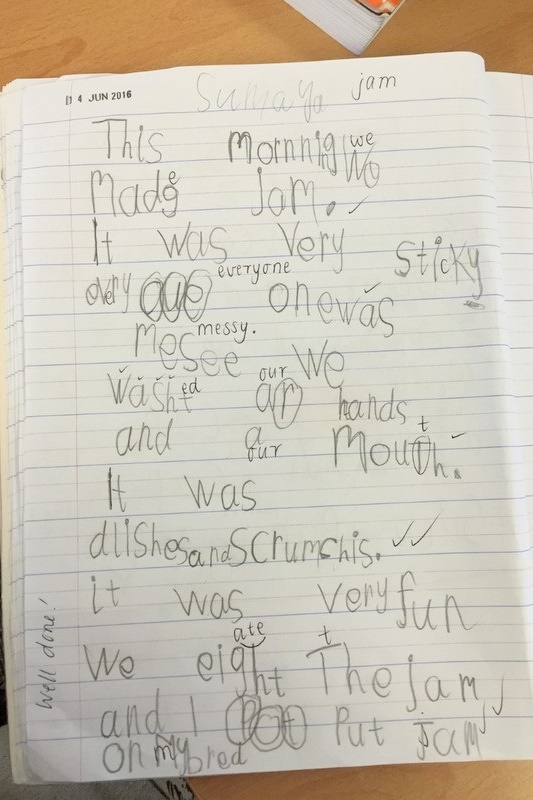 D 4 JUN 2016
Sumaya jam
This mornnig we We
made e jam.
It was very
sticky
everyone
every one was
messy.
mesee our We
washt ed ar hands
and a our mouth. t
It was
dlishes and Scrumshis.
it was very fun
ate t
We eight The jam
and I Pot Put jam
on my bred
Well done!